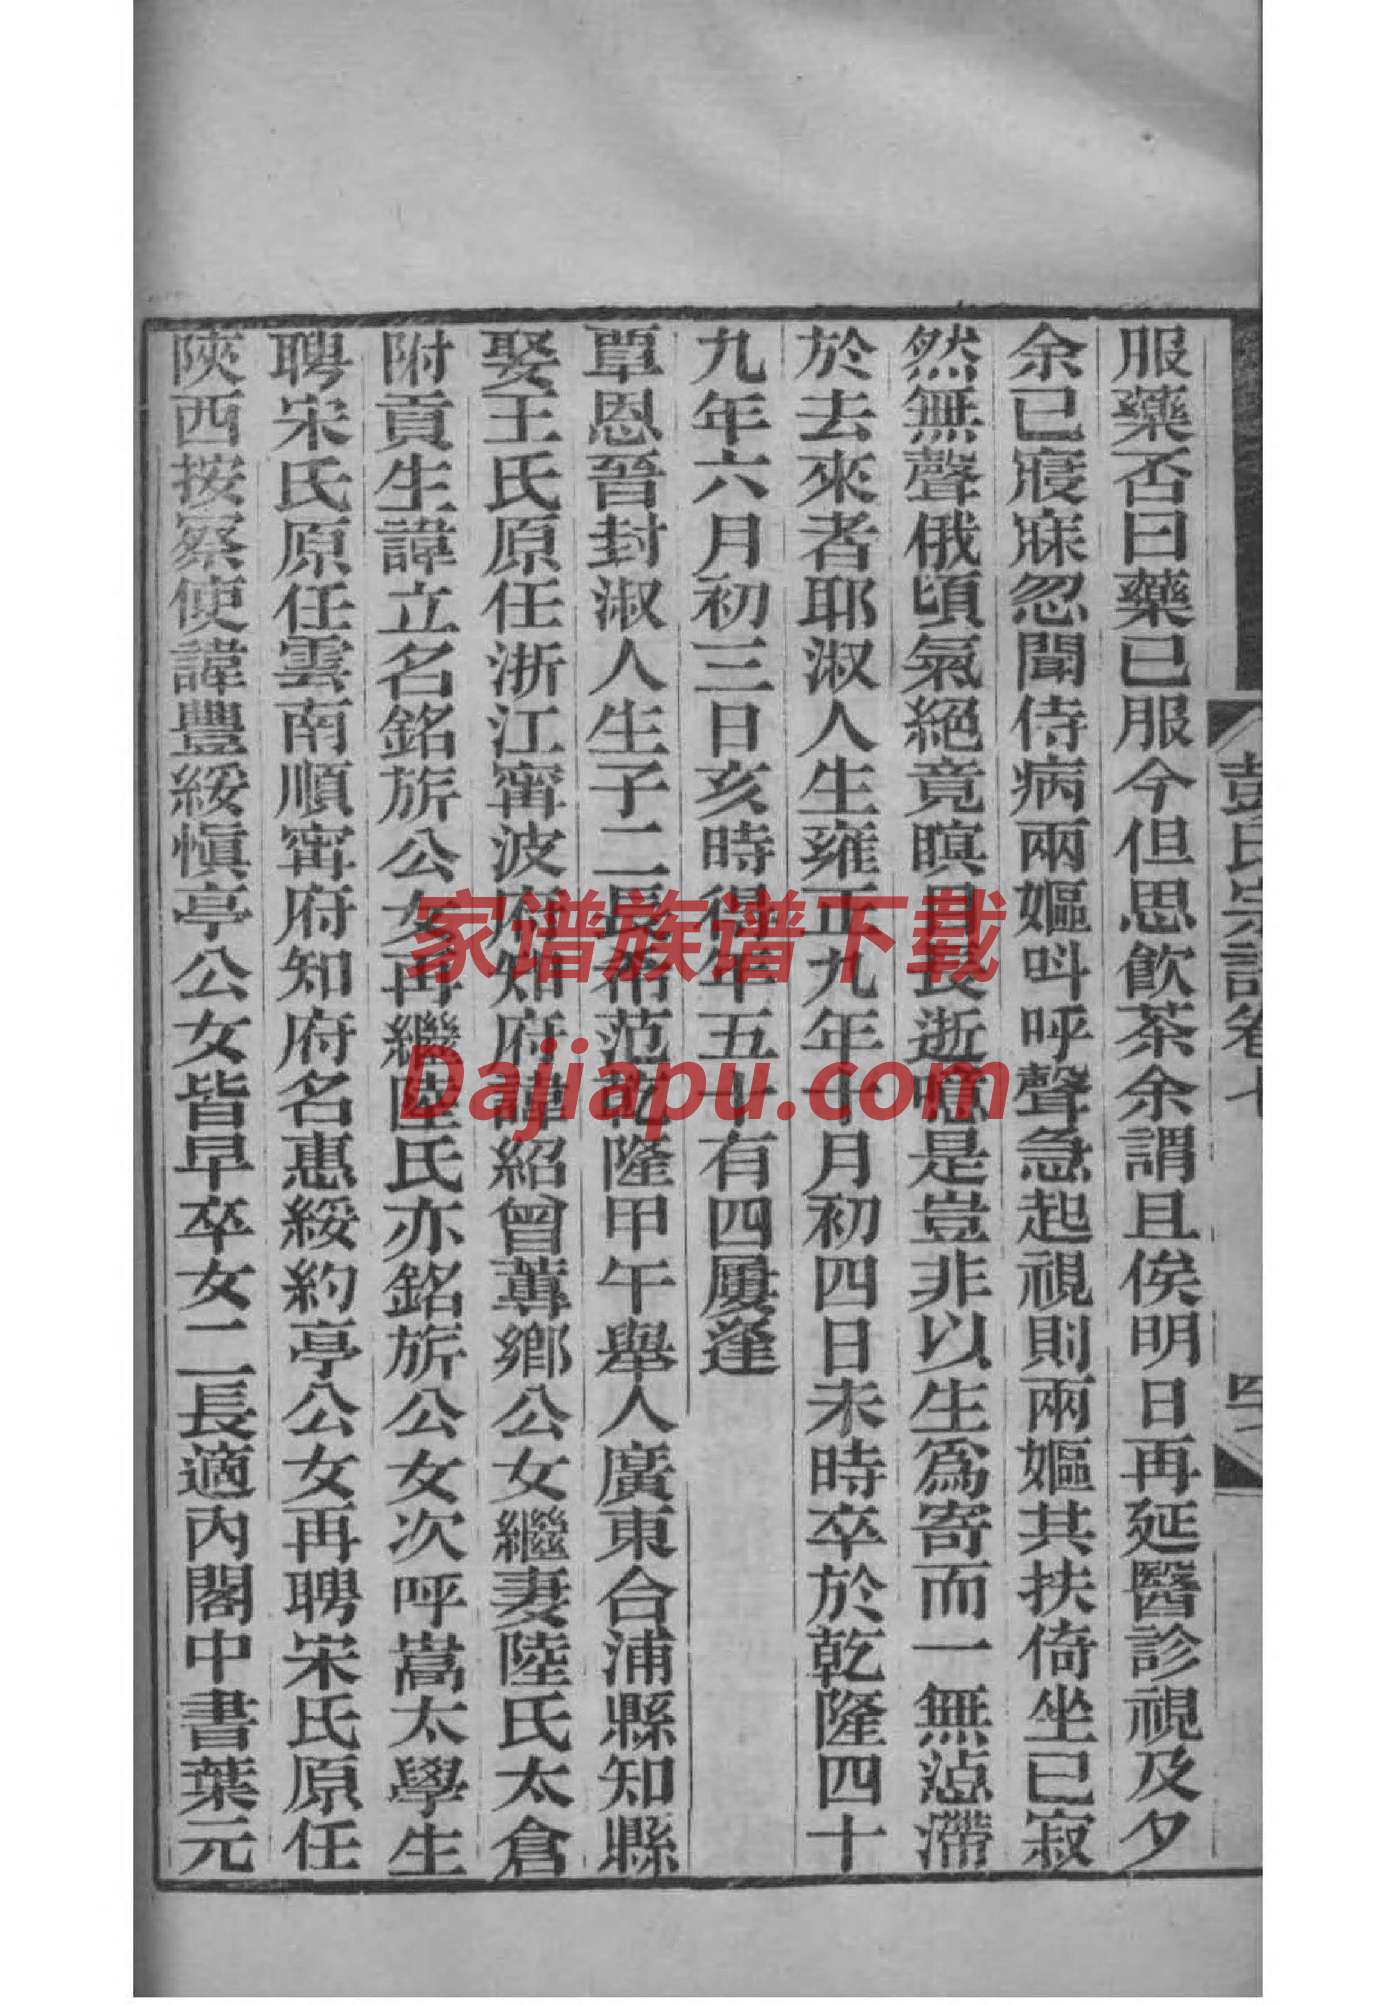 彭氏宗譜卷七
服藥否曰藥已服今但思飲茶余謂且俟明日再延醫診視及夕
余已寢寐忽聞侍病兩嫗呌呼聲急起視則兩嫗共扶倚坐已寂
然無聲俄頃氣絕竟瞑目長逝噫是豈非以生爲寄而一無㴃滯
於去來者耶淑人生雍正九年十月初四日未時卒於乾隆四十
九年六月初三日亥時得年五十有四屢逢
覃恩晉封淑人生子二長希范乾隆甲午舉人廣東合浦縣知縣
娶王氏原任浙江甯波府知府諱紹曾蓴鄉公女繼妻陸氏太倉
附貢生諱立名銘旂公女再繼陸氏亦銘旂公女次呼嵩太學生
聘宋氏原任雲南順甯府知府名惠綏約亭公女再聘宋氏原任
陝西按察使諱豐綏愼亭公女皆早卒女二長適內閣中書葉元
家谱族谱下载
Dajiapu.com